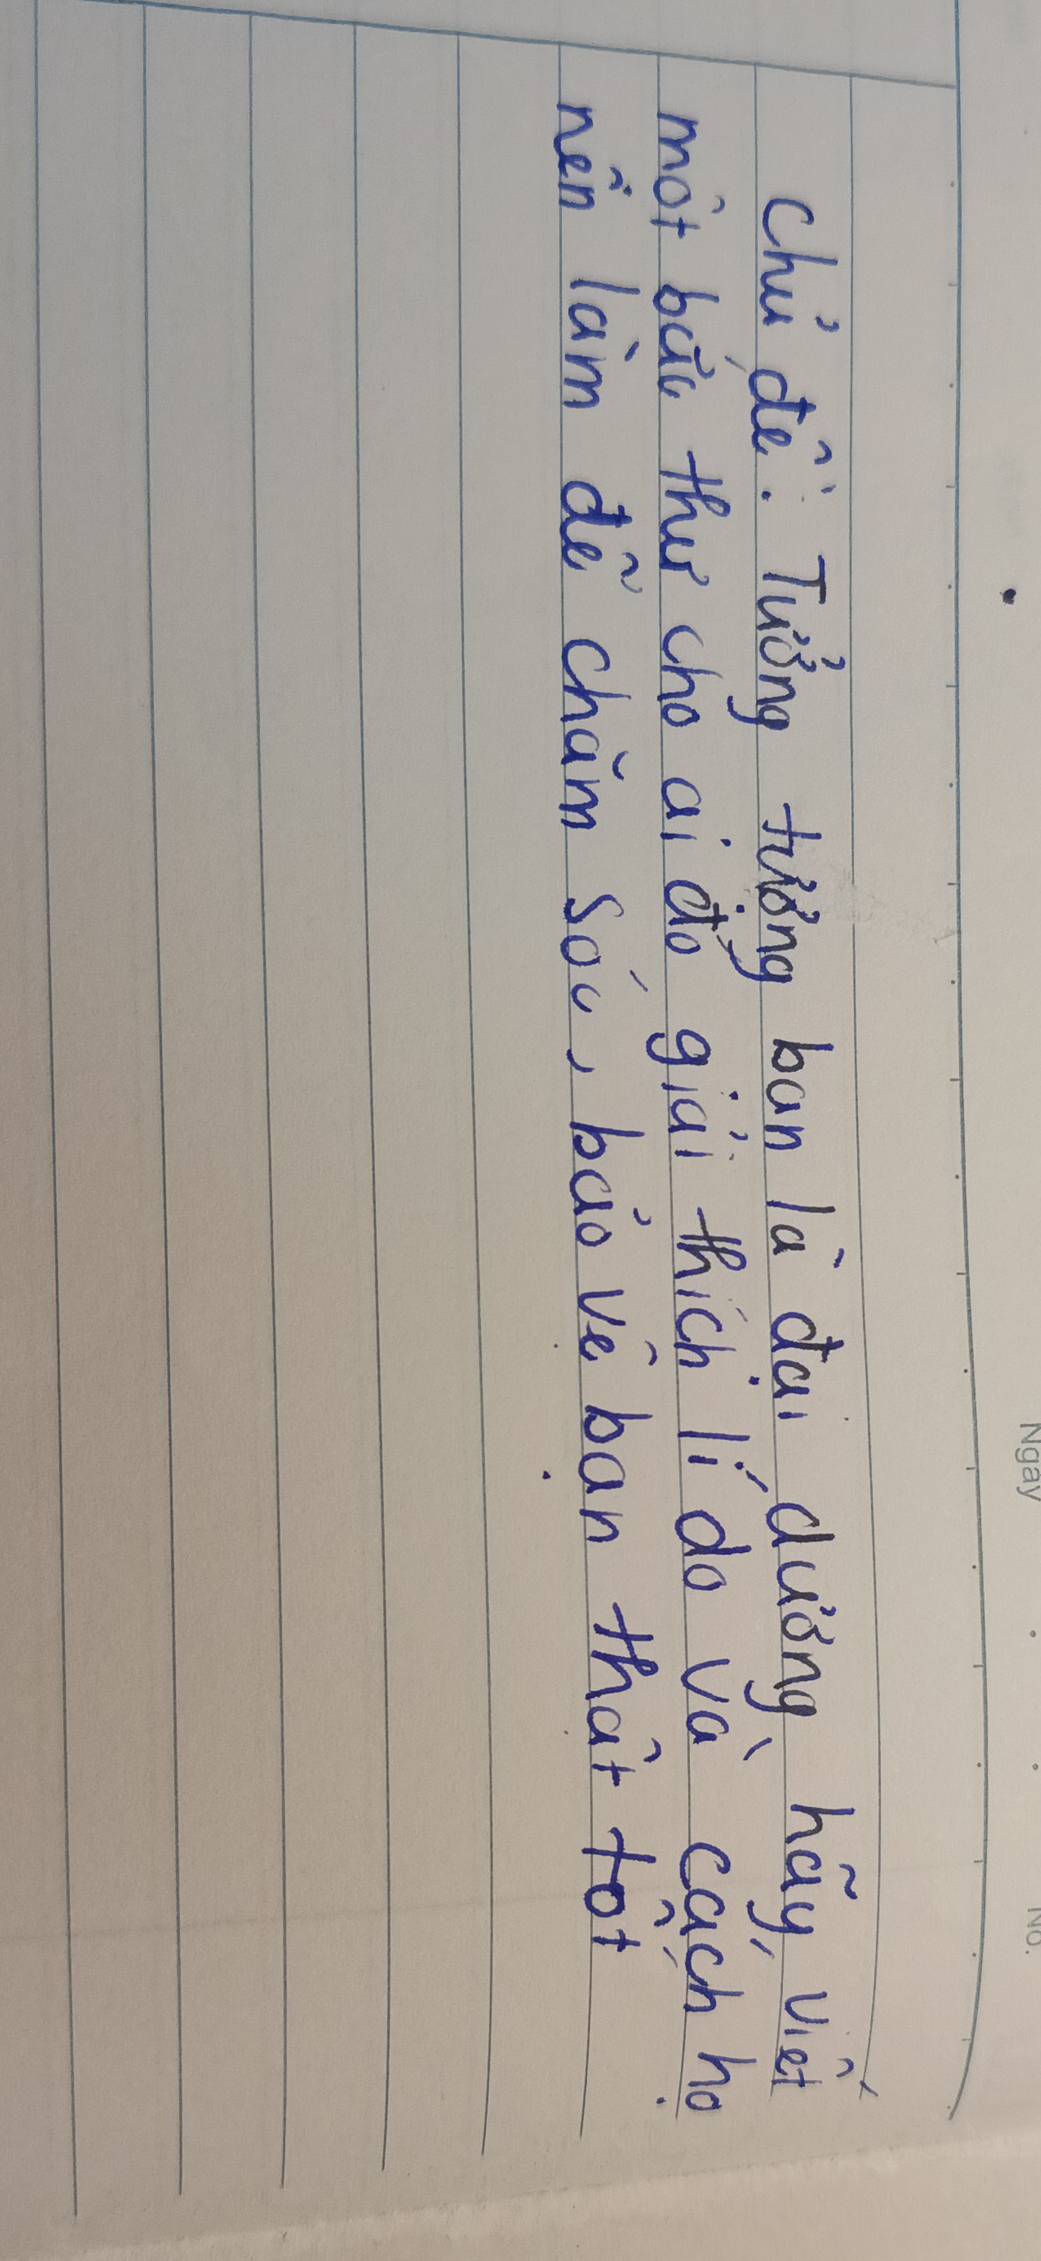 Ngày
No.
Chủ đề: Tưởng tượng bạn là đại dương, hãy viết
một bức thư cho ai đó giải thích lí do và cách họ
nên làm để chăm sóc, bảo vệ bạn thật tốt